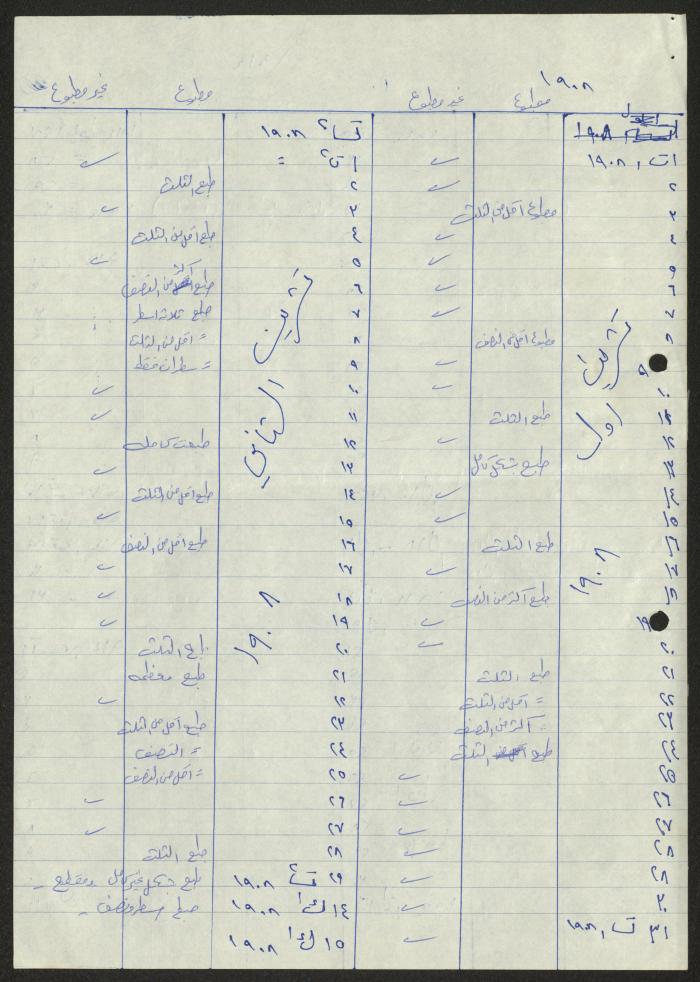 ١٩٠٨
مطبوع غير مطبوع مطبوع غير مطبوع
ايلول
ت٢ ١٩٠٨
١ ت١ ١٩٠٨ ✓ ١ ت٢ = ✓
٢ ✓ ٢ طبع الثلث
٣ مطبوع اقل من الثلث ٣ ✓
٤ ✓ ٤ طبع اقل من الثلث
٥ ✓ ٥ ✓
٦ ✓ ٦ طبع اكثر من النصف
٧ ✓ ٧ طبع ثلاثة اسطر
٨ مطبوع اقل من النصف ٨ = اقل من الثلث
٩ ✓ ٩ = سطران فقط
١٠ ✓ ١٠ ✓
طبع الثلث ١١ ✓
١٢ ✓ ١٢ طبعت كاملة
طبع بشكل كامل ١٣ ✓
✓ ١٤ طبع اقل من الثلث
✓ ١٥ ✓
طبع الثلث ١٦ طبع اقل من النصف
✓ ١٧ ✓
طبع اكثر من النصف ١٨ ✓
١٩ ✓ ١٩ ✓
✓ ٢٠ طبع الثلث
٢١ طبع الثلث ٢١ طبع معظمه
٢٢ = اقل من الثلث ٢٢ ✓
٢٣ = اكثر من النصف ٢٣ طبع اقل من الثلث
طبع الثلث ٢٤ = النصف
٢٥ ✓ ٢٥ = اقل من النصف
٢٦ ✓ ٢٦ ✓
٢٧ ✓ ٢٧ ✓
٢٨ ✓ ٢٨ طبع الثلث
✓ ٢٩ ت٢ ١٩٠٨ طبع بشكل غير كامل ومقطع -
٣٠ ✓ ١٤ ك١ ١٩٠٨ طبع سطر ونصف -
٣١ ت١ ١٩٠٨ ✓ ١٥ ك١ ١٩٠٨
تشرين اول ١٩٠٨
تشرين الثاني ١٩٠٨